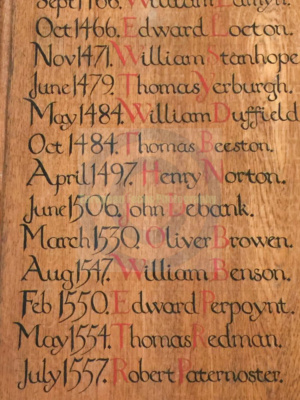 Sept 1466. William Emlyn.
Oct 1466. Edward Loeton.
Nov 1471. William Stanhope
June 1479. Thomas Yerburgh.
May 1484. William Duffield
Oct 1484. Thomas Beeston.
April 1497. Henry Norton.
June 1506. John Debank.
March 1530. Oliver Browen.
Aug 1547. William Benson.
Feb 1550. Edward Perpoynt.
May 1554. Thomas Redman.
July 1557. Robert Paternoster.